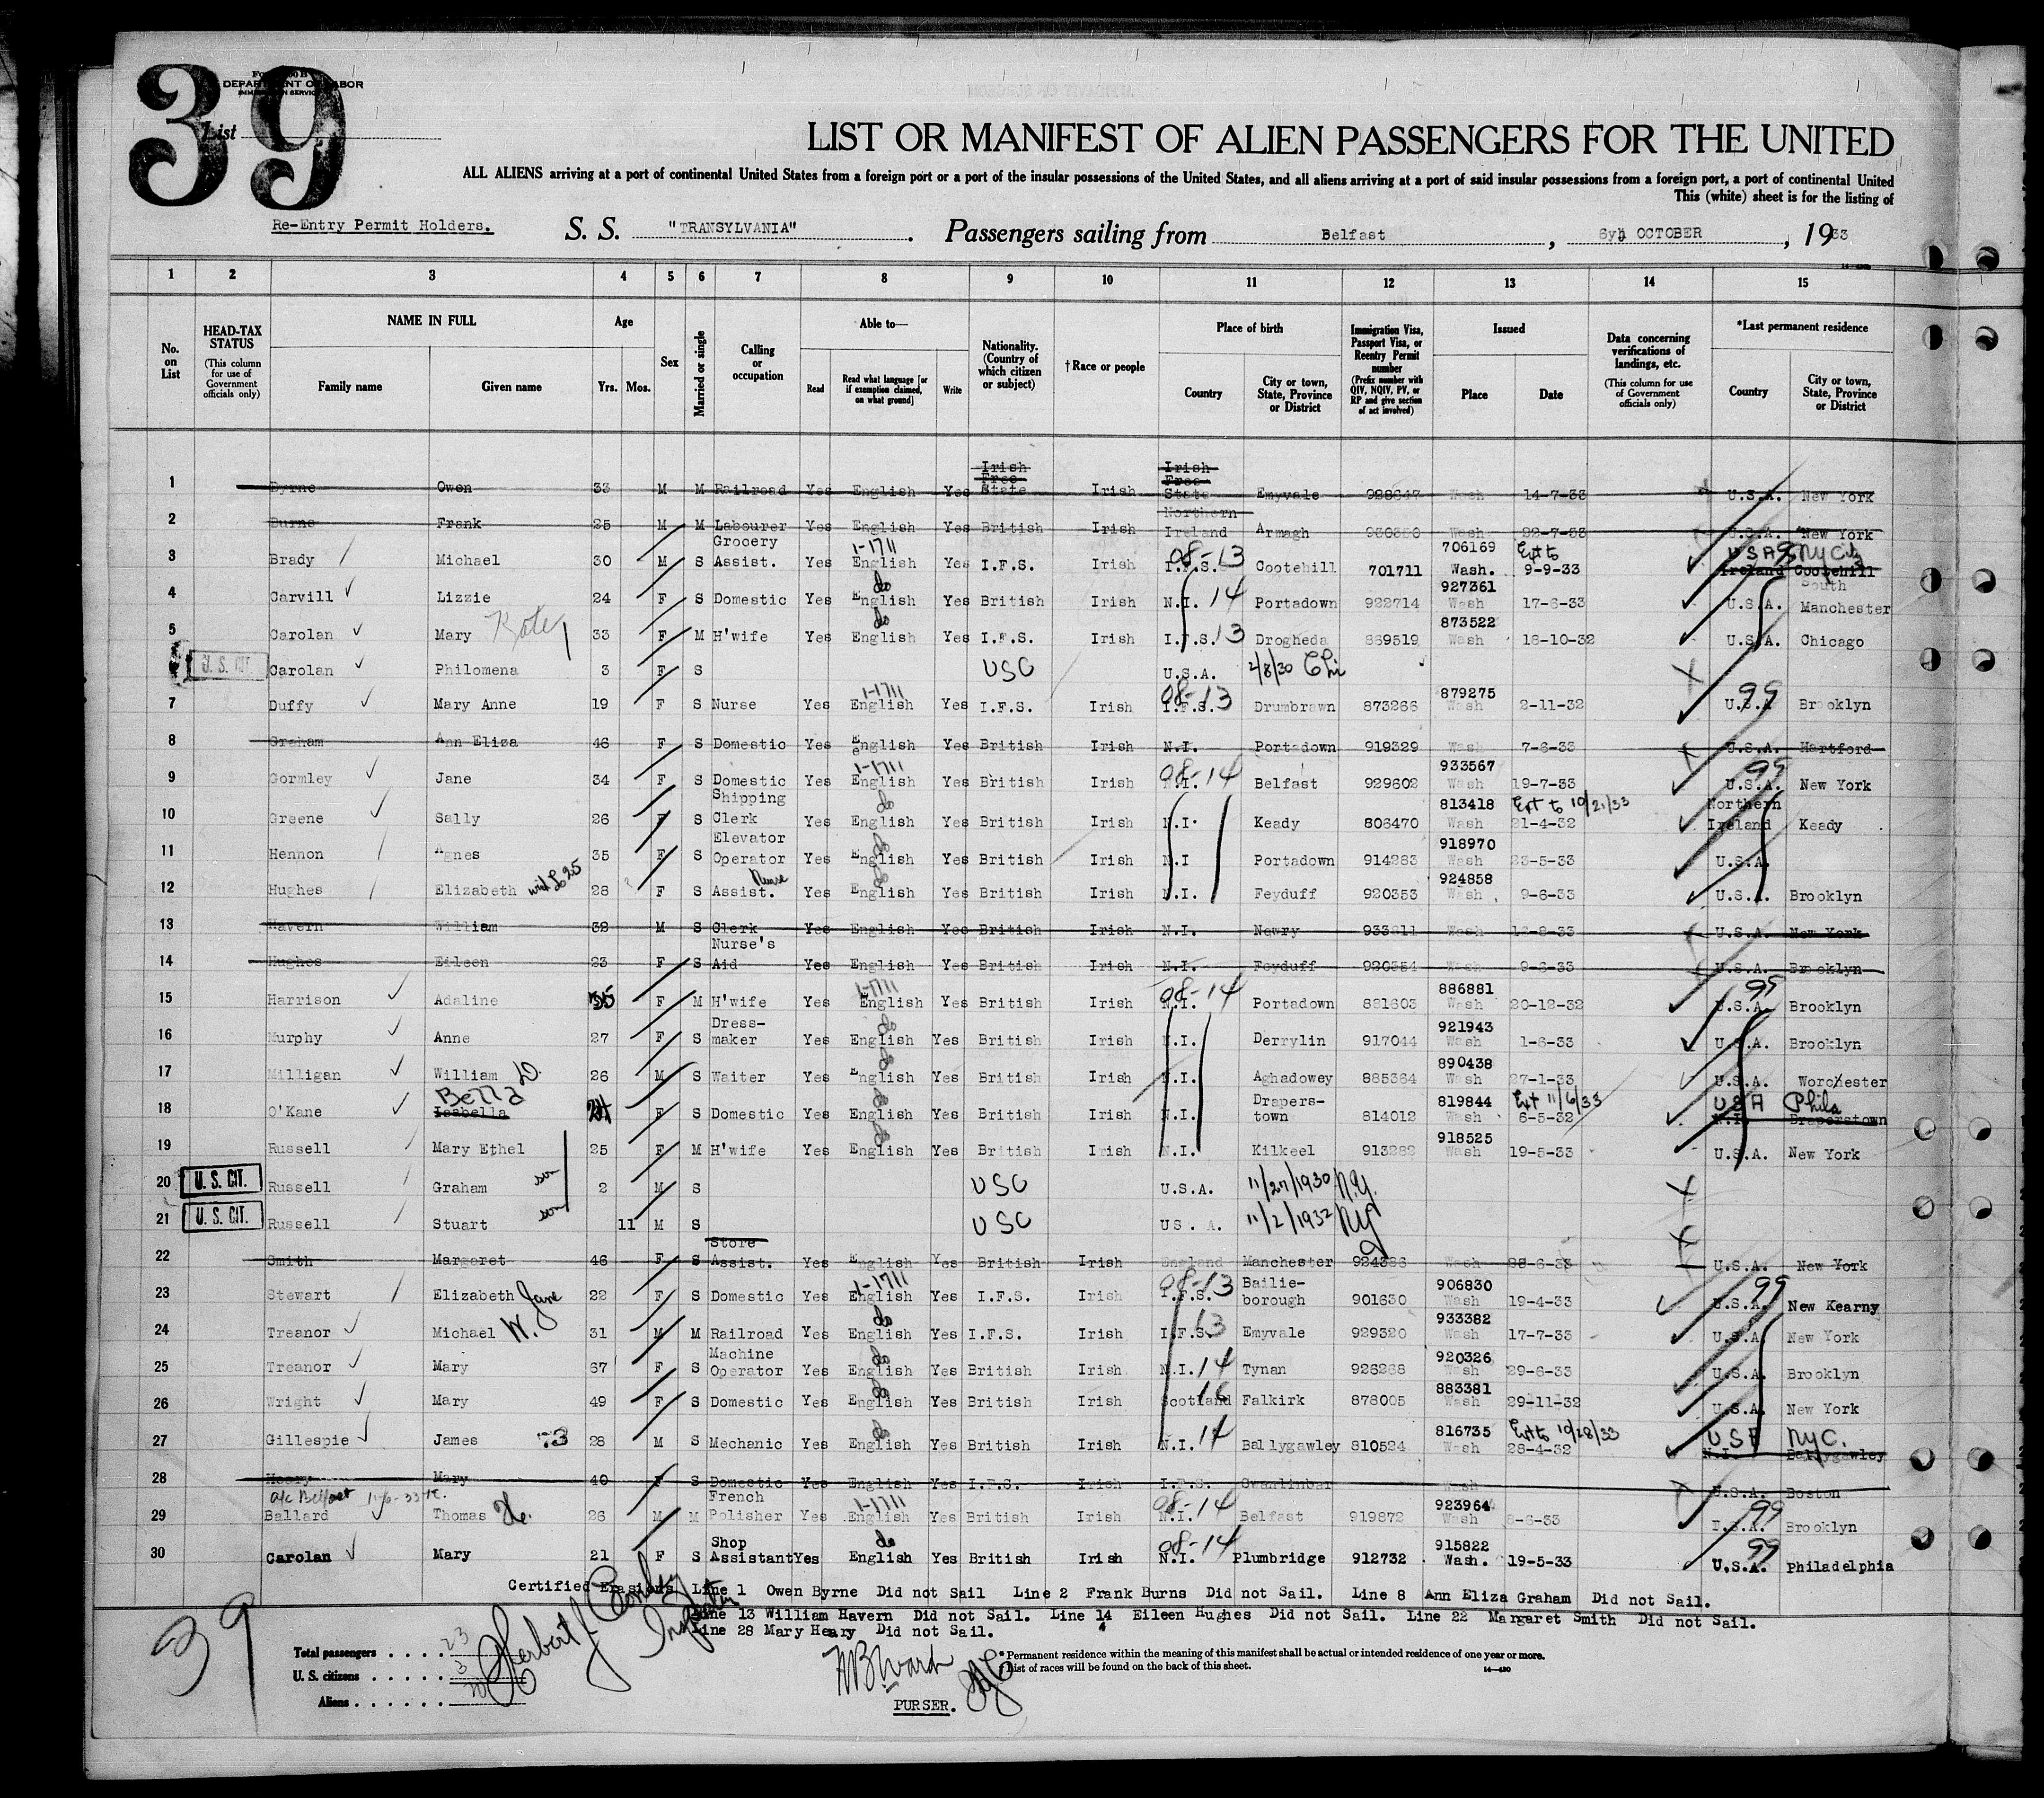 39
Form 500 B
DEPARTMENT OF LABOR
IMMIGRATION SERVICE
List
LIST OR MANIFEST OF ALIEN PASSENGERS FOR THE UNITED
ALL ALIENS arriving at a port of continental United States from a foreign port or a port of the insular possessions of the United States, and all aliens arriving at a port of said insular possessions from a foreign port, a port of continental United
This (white) sheet is for the listing of
Re-Entry Permit Holders. S. S. "TRANSYLVANIA" . Passengers sailing from Belfast , OCTOBER , 1933
1 2 3 4 5 6 7 8 9 10 11 12 13 14 15
No. on List
HEAD-TAX STATUS (This column for use of Government officials only)
NAME IN FULL Family name Given name
Age Yrs. Mos.
Sex
Married or single
Calling or occupation
Able to— Read Read what language [or if exemption claimed, on what ground] Write
Nationality. (Country of which citizen or subject)
†Race or people
Place of birth Country City or town, State, Province or District
Immigration Visa, Passport Visa, or Reentry Permit number (Prefix number with QIV, NQIV, PV, or RP and give section of act involved)
Issued Place Date
Data concerning verifications of landings, etc. (This column for use of Government officials only)
*Last permanent residence Country City or town, State, Province or District
1 Byrne Owen 33 M M Railroad Yes English Yes Irish Free State Irish Irish Free State Emyvale 928647 Wash 14-7-33 U.S.A. New York
2 Burns Frank 25 M M Labourer Yes English Yes British Irish Northern Ireland Armagh Wash 22-7-33 U.S.A. New York
3 Brady Michael 30 M S Grocery Assist. Yes 1-1711 English Yes I.F.S. Irish 08-13 I.F.S. Cootehill 701711 706169 Wash. Ext to 9-9-33 USA 99 NY City Ireland Cootehill
4 Carvill Lizzie 24 F S Domestic Yes do English Yes British Irish N.I. 14 Portadown 922714 927361 Wash 17-6-33 U.S.A. South Manchester
5 Carolan Mary Kate 33 F M H'wife Yes do English Yes I.F.S. Irish I.F.S. 13 Drogheda 869519 873522 Wash 18-10-32 U.S.A. Chicago
U. S. CIT. Carolan Philomena 3 F S USC U.S.A. 2/8/30 Chi
7 Duffy Mary Anne 19 F S Nurse Yes 1-1711 English Yes I.F.S. Irish 08-13 I.F.S. Drumbrawn 873266 879275 Wash 2-11-32 99 U.S.A Brooklyn
8 Graham Ann Eliza 46 F S Domestic Yes English Yes British Irish N.I. Portadown 919329 Wash 7-6-33 U.S.A. Hartford
9 Gormley Jane 34 F S Domestic Yes 1-1711 English Yes British Irish 08-14 N.I. Belfast 929602 933567 Wash 19-7-33 99 U.S.A. New York
10 Greene Sally 26 F S Shipping Clerk Yes do English Yes British Irish N.I. Keady 806470 813418 Wash Ext to 10/21/33 21-4-32 Northern Ireland Keady
11 Hennon Agnes 35 F S Elevator Operator Yes do English Yes British Irish N.I Portadown 914283 918970 Wash 23-5-33 U.S.A.
12 Hughes Elizabeth with L 25 28 F S Nurse Assist. Yes do English Yes British Irish N.I. Feyduff 920353 924858 Wash 9-6-33 U.S.A. Brooklyn
13 Havern William 32 M S Clerk Yes English Yes British Irish N.I. Newry 933211 Wash U.S.A. New York
14 Hughes Eileen 23 F S Nurse's Aid Yes English Yes British Irish N.I. Feyduff 920354 Wash 9-6-33 U.S.A. Brooklyn
15 Harrison Adaline 35 F M H'wife Yes 1-1711 English Yes British Irish 08-14 N.I. Portadown 881603 886881 Wash 20-12-32 99 U.S.A. Brooklyn
16 Murphy Anne 27 F S Dress-maker Yes do English Yes British Irish N.I. Derrylin 917044 921943 Wash 1-6-33 U.S.A. Brooklyn
17 Milligan William D. 26 M S Waiter Yes do English Yes British Irish N.I. Aghadowey 885364 890438 Wash 27-1-33 U.S.A. Worchester
18 O'Kane Bella Isabella 24 F S Domestic Yes do English Yes British Irish N.I. Drapers-town 814012 819844 Wash Ext 11/6/33 6-5-32 USA Phila N.I. Draperstown
19 Russell Mary Ethel 25 F M H'wife Yes do English Yes British Irish N.I. Kilkeel 913282 918525 Wash 19-5-33 U.S.A. New York
20 U. S. CIT. Russell Graham son 2 M S USC U.S.A. 11/27/1930 N.Y.
21 U. S. CIT. Russell Stuart son 11 M S USC US.A. 11/2/1932 NY
22 Smith Margaret 46 F S Store Assist. Yes English Yes British Irish England Manchester 924386 Wash U.S.A. New York
23 Stewart Elizabeth Jane 22 F S Domestic Yes 1-1711 English Yes I.F.S. Irish 08-13 I.F.S. Bailie-borough 901630 906830 Wash 19-4-33 99 U.S.A. New Kearny
24 Treanor Michael W. 31 M M Railroad Yes do English Yes I.F.S. Irish I.F.S. 13 Emyvale 929320 933382 Wash 17-7-33 U.S.A. New York
25 Treanor Mary 67 F S Machine Operator Yes do English Yes British Irish N.I. 14 Tynan 926268 920326 Wash 29-6-33 U.S.A. Brooklyn
26 Wright Mary 49 F S Domestic Yes do English Yes British Irish Scotland 16 Falkirk 878005 883381 Wash 29-11-32 U.S.A. New York
27 Gillespie James 28 M S Mechanic Yes do English Yes British Irish N.I. 14 Ballygawley 810524 816735 Wash Ext to 10/28/33 28-4-32 US NYC. N.I. Ballygawley
28 Heary Mary 40 F S Domestic Yes English Yes I.F.S. Irish I.F.S. Swanlinbar Wash U.S.A. Boston
29 a/c Belfast Ballard Thomas 26 M M French Polisher Yes 1-1711 English Yes British Irish 08-14 N.I. Belfast 919872 923964 Wash 8-6-33 99 U.S.A. Brooklyn
30 Carolan Mary 21 F S Shop Assistant Yes do English Yes British Irish 08-14 N.I. Plumbridge 912732 915822 Wash. 19-5-33 99 U.S.A. Philadelphia
Certified Erasions Line 1 Owen Byrne Did not Sail Line 2 Frank Burns Did not Sail. Line 8 Ann Eliza Graham Did not Sail.
Line 13 William Havern Did not Sail. Line 14 Eileen Hughes Did not Sail. Line 22 Margaret Smith Did not Sail.
Line 28 Mary Heary Did not Sail.
39
Total passengers . . . . 23
U. S. citizens . . . . . 3
Aliens . . . . . . 20
Herbert J. Conley Inspector
PURSER.
*Permanent residence within the meaning of this manifest shall be actual or intended residence of one year or more.
†List of races will be found on the back of this sheet.
14—430